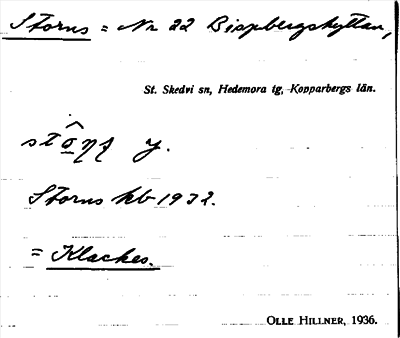 Storns = Nr 22 Bispbergshyttan,
St. Skedvi sn, Hedemora tg, Kopparbergs län.
y.
Storns kb 1932.
= Klackes.
OLLE HILLNER, 1936.